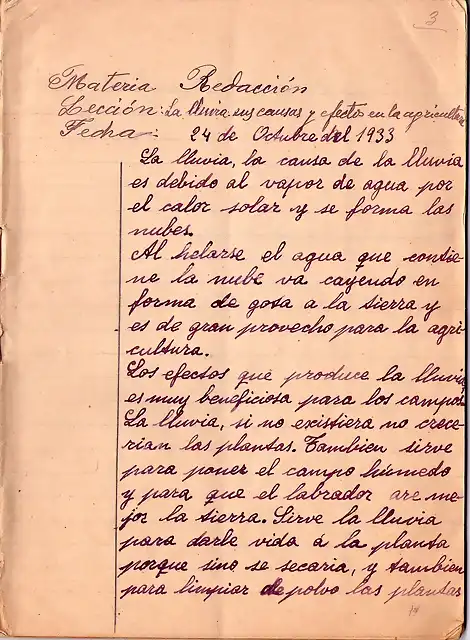 3
Materia Redacción
Lección: La lluvia sus causas y efectos en la agricultura
Fecha: 24 de Octubre del 1933
La lluvia, la causa de la lluvia
es debido al vapor de agua por
el calor solar y se forma las
nubes.
Al helarse el agua que contie-
ne la nube va cayendo en
forma de gota a la tierra y
es de gran provecho para la agri-
cultura.
Los efectos que produce la lluvia
es muy beneficiosa para los campos.
La lluvia, si no existiera no crece-
rian las plantas. Tambien sirve
para poner el campo húmedo
y para que el labrador are me-
jor la tierra. Sirve la lluvia
para darle vida á la planta
porque sino se secaria, y tambien
para limpiar de polvo las plantas